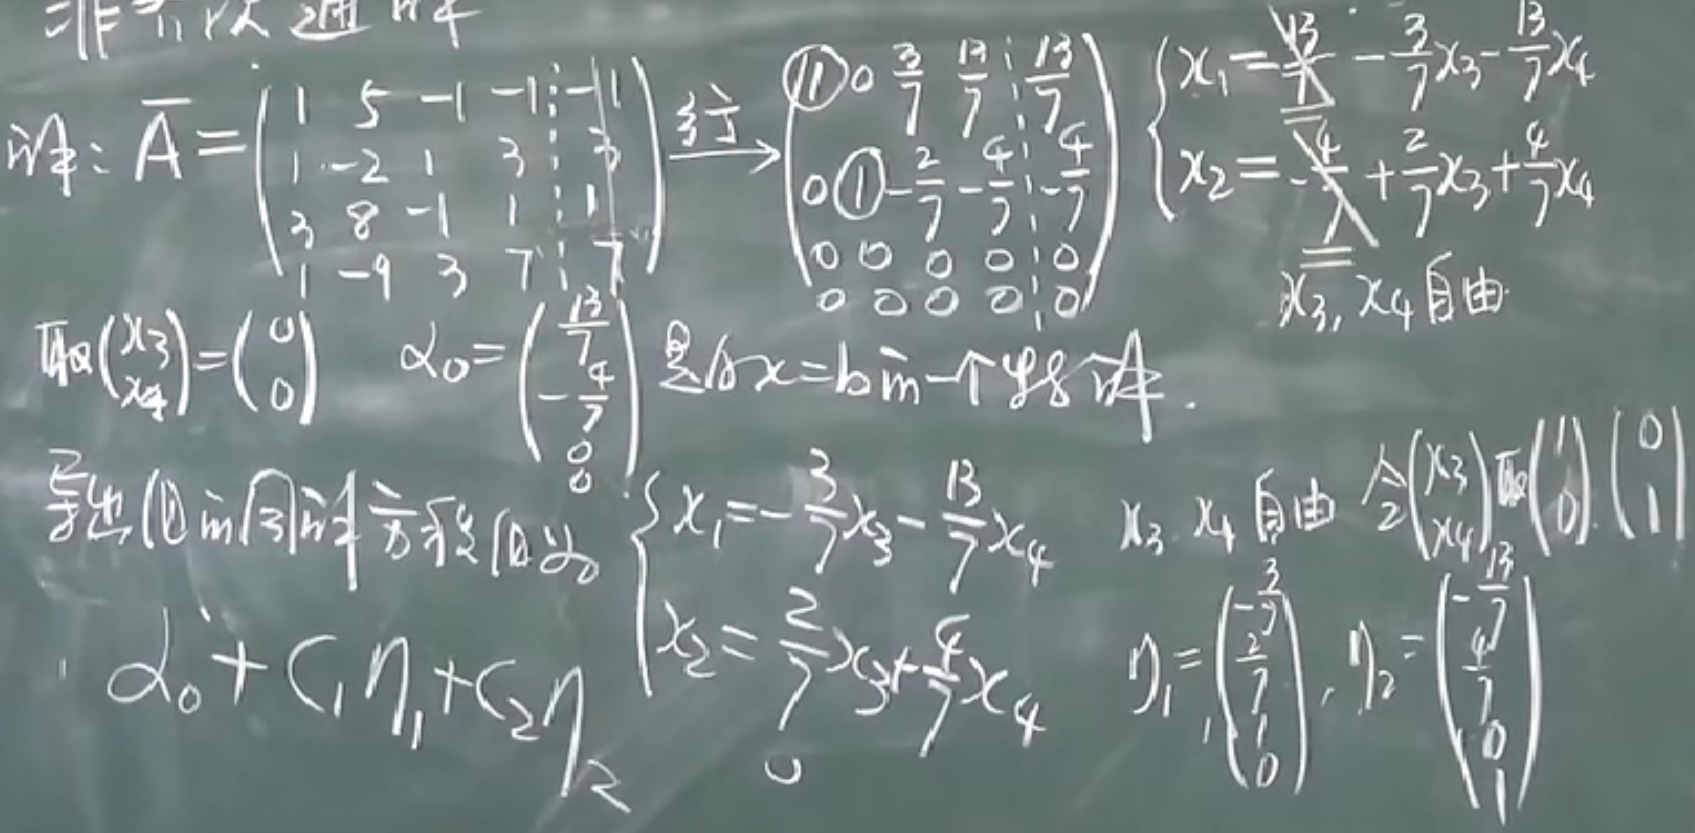 非齐次通解
解: A̅ = ( 1 5 -1 -1 ┊ -1 ; 1 -2 1 3 ┊ 3 ; 3 8 -1 1 ┊ 1 ; 1 -9 3 7 ┊ 7 ) —行→ ( 1 0 3/7 13/7 ┊ 13/7 ; 0 1 -2/7 -4/7 ┊ -4/7 ; 0 0 0 0 ┊ 0 ; 0 0 0 0 ┊ 0 )
{ x₁ = 13/7 - 3/7 x₃ - 13/7 x₄
x₂ = -4/7 + 2/7 x₃ + 4/7 x₄
x₃, x₄ 自由
取 (x₃ ; x₄) = (0 ; 0) α₀ = (13/7 ; -4/7 ; 0 ; 0) 是 Ax = b 的一个特解.
导出组的同解方程组为 { x₁ = -3/7 x₃ - 13/7 x₄
x₂ = 2/7 x₃ + 4/7 x₄
x₃, x₄ 自由 令 (x₃ ; x₄) 取 (1 ; 0), (0 ; 1)
η₁ = (-3/7 ; 2/7 ; 1 ; 0), η₂ = (-13/7 ; 4/7 ; 0 ; 1)
α₀ + C₁η₁ + C₂η₂